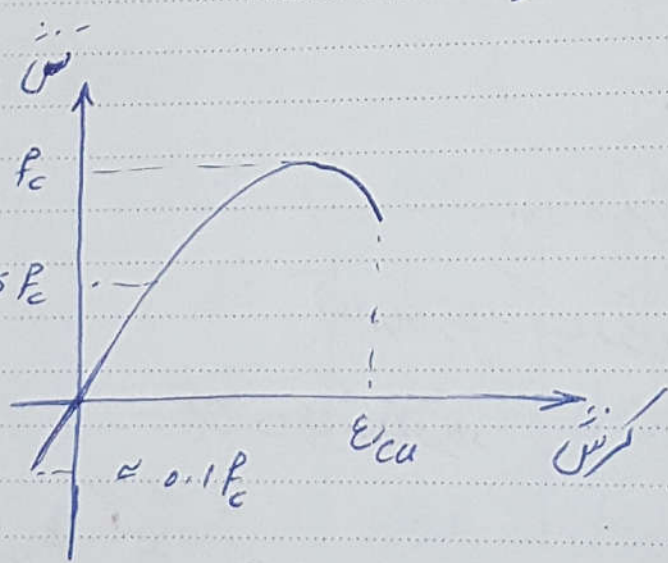 تنش
f_c
5 f_c
ε_cu
کرنش
≈ 0.1 f_c